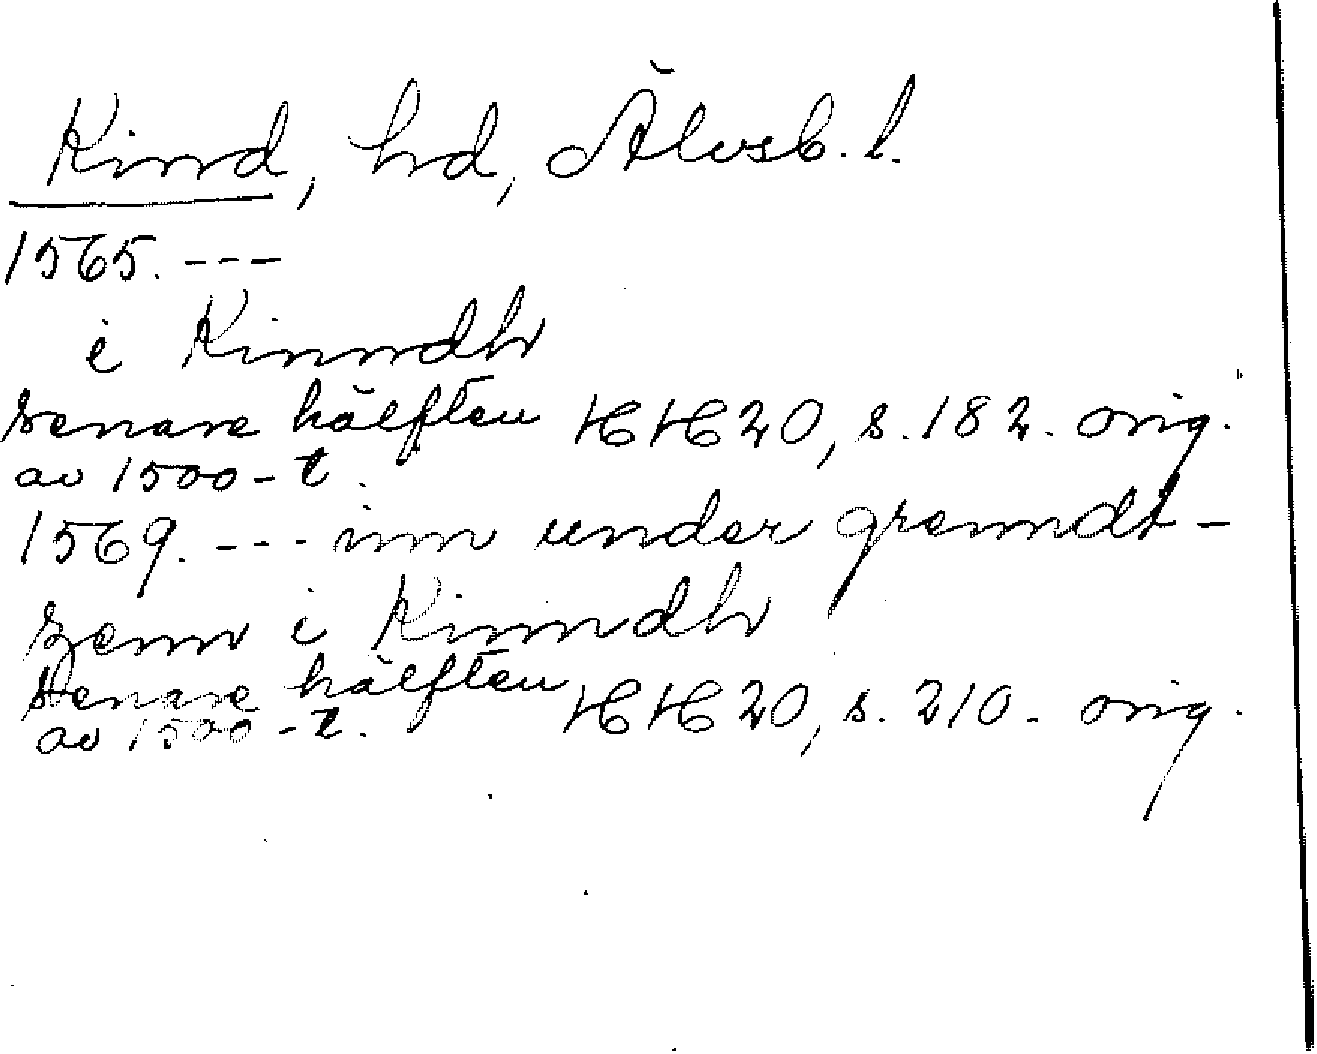 Kind, hd, Älvsb. l.
1565. ---
i Kinndh
senare hälften HH 20, s. 182. orig.
av 1500-t.
1569. --- inn under grenndt-
zenn i Kinndh
senare hälften HH 20, s. 210. orig.
av 1500-t.